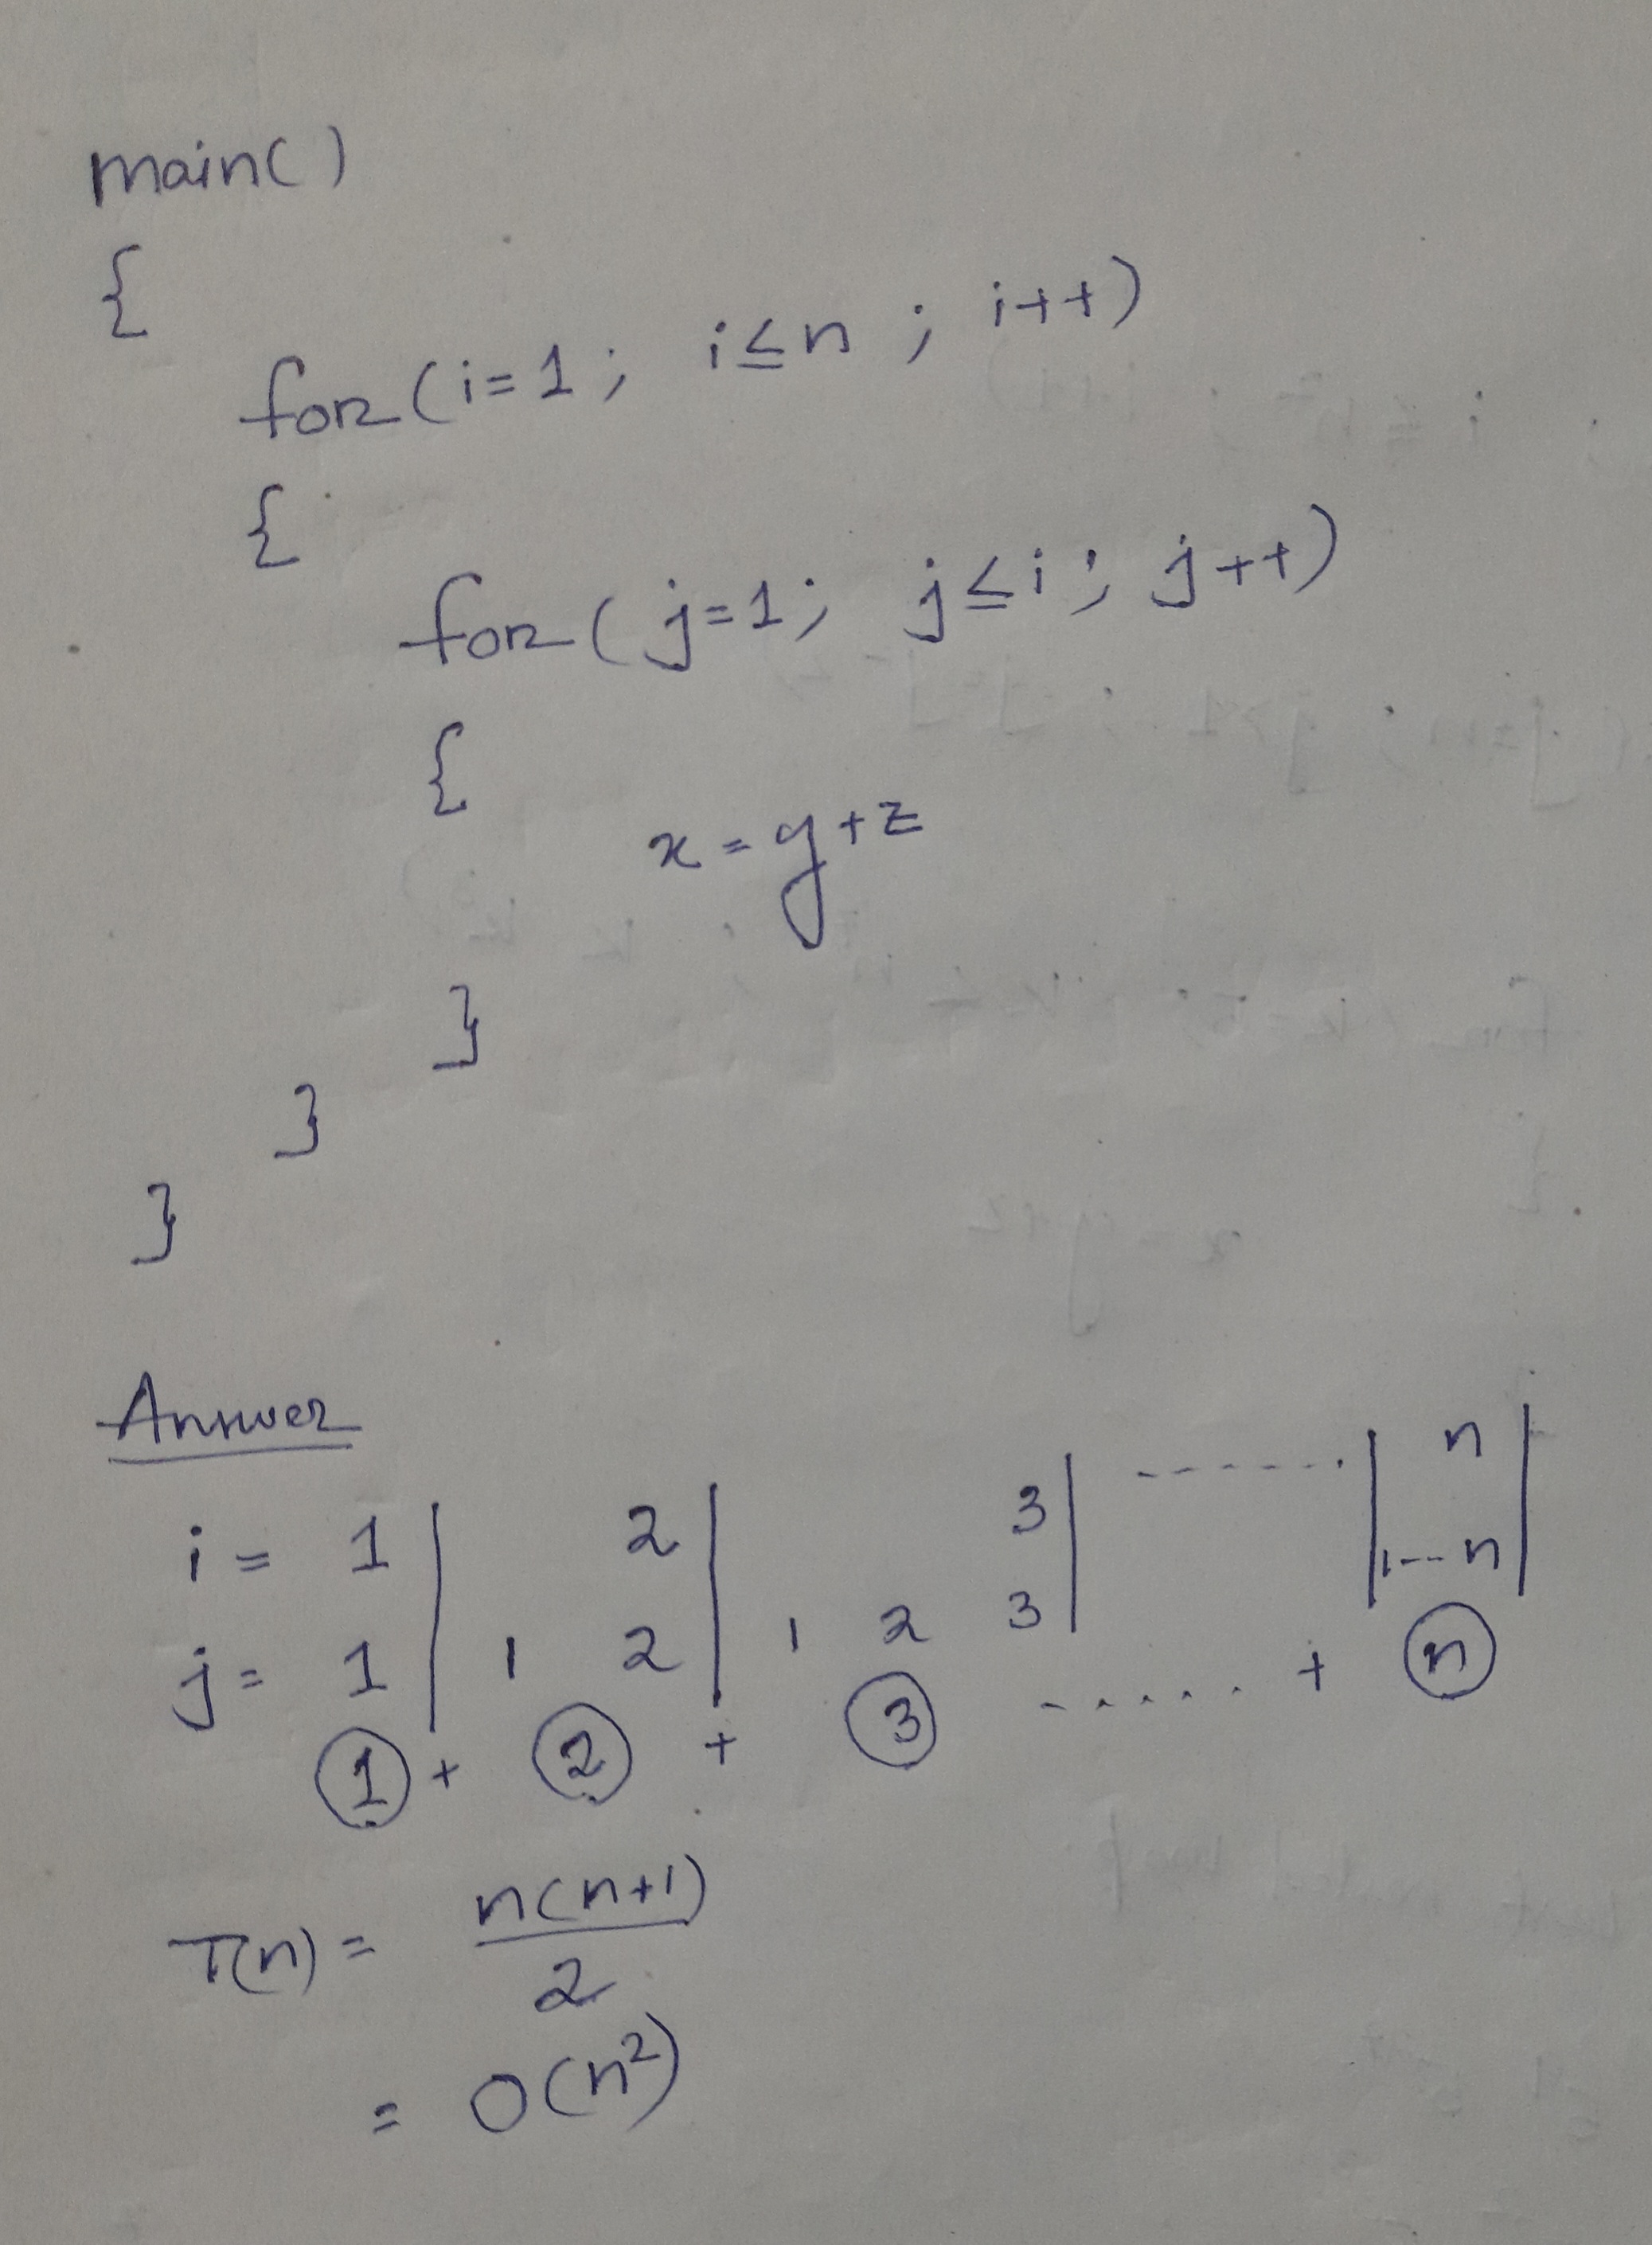 main()
{
for(i=1; i≤n; i++)
{
for(j=1; j≤i; j++)
{
x=y+z
}
}
}
Answer
i= 1 | 2 | 3 | ------ | n |
j= 1 | 1 2 | 1 2 3 | | 1---n |
1 + 2 + 3 ...... + n
T(n) = n(n+1)/2
= O(n²)